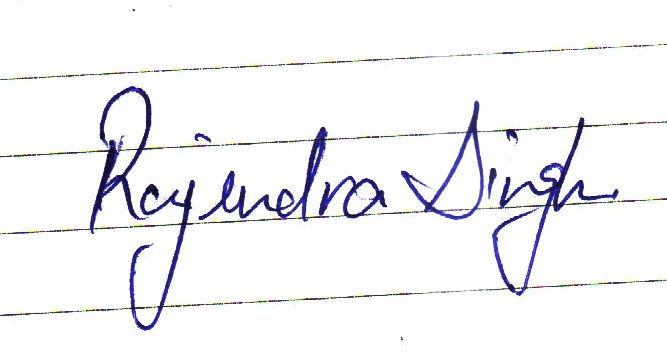 Rajendra Singh